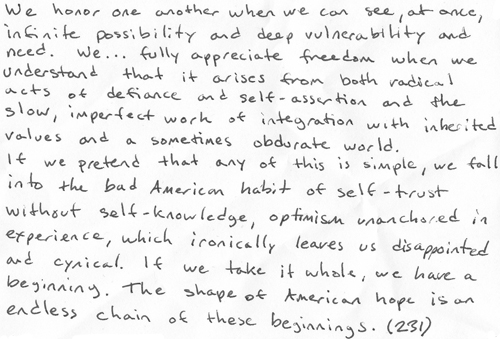 We honor one another when we can see, at once,
infinite possibility and deep vulnerability and
need. We... fully appreciate freedom when we
understand that it arises from both radical
acts of defiance and self-assertion and the
slow, imperfect work of integration with inherited
values and a sometimes obdurate world.
If we pretend that any of this is simple, we fall
into the bad American habit of self-trust
without self-knowledge, optimism unanchored in
experience, which ironically leaves us disappointed
and cynical. If we take it whole, we have a
beginning. The shape of American hope is an
endless chain of these beginnings. (231)